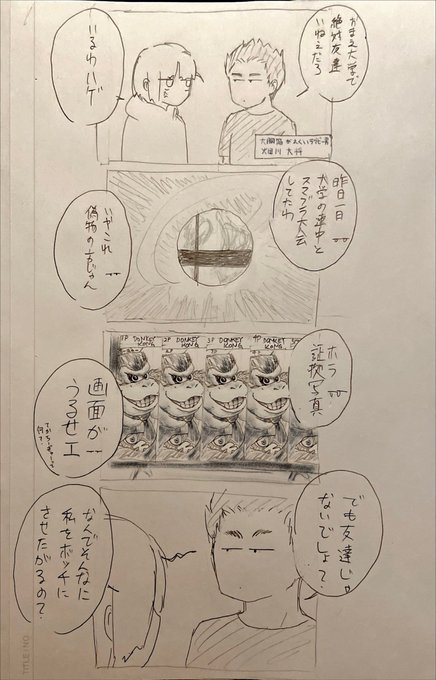 おまえ大学で
絶対友達
いねえだろ
いるわハゲ
大将
昨日一日
大学の連中と
スマブラ大会
してたわ
いやこれ
偽物の方じゃん
ホラ
証拠写真
1P DONKEY
KONG
2P DONKEY
KONG
3P DONKEY
KONG
4P DONKEY
KONG
画面が
うるせエ
でも友達じゃ
ないでしょ?
なんでそんなに
私をボッチに
させたがるの?
TITLE/NO.